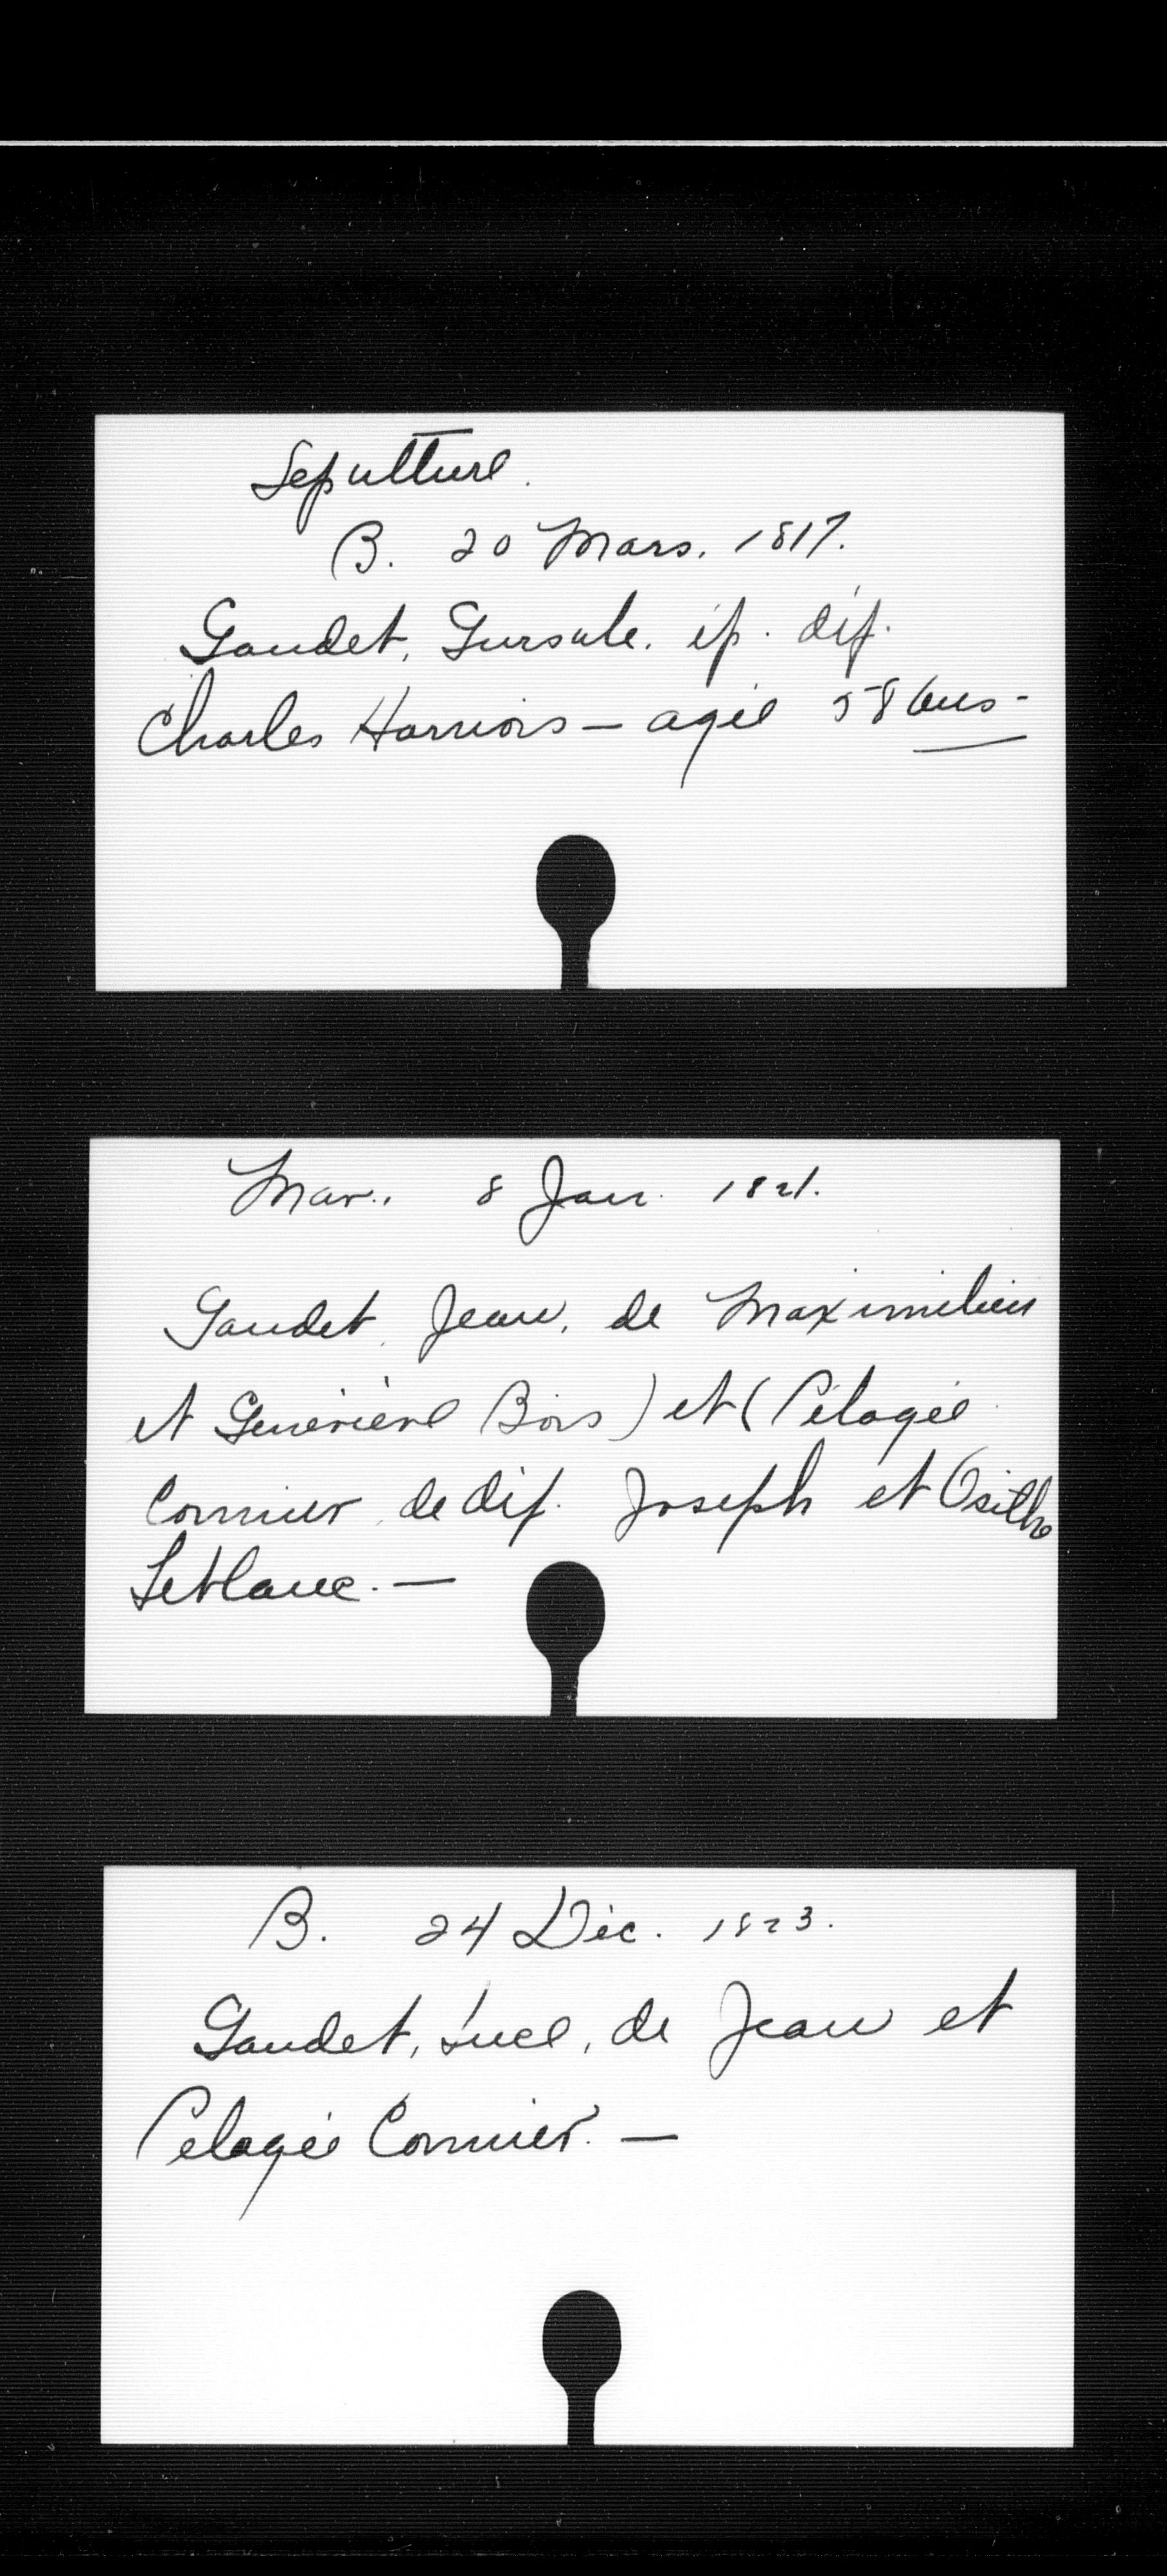 Sepulture.
B. 20 Mars. 1817.
Gaudet, Gursule. ép. déf.
Charles Harnois – agée 58 ans -
Mar. 8 Jan. 1821.
Gaudet, Jean, de Maximilien
et Geneviève Bois) et (Pélagie
Cormier de déf. Joseph et Osithe
Leblanc. —
B. 24 Déc. 1823.
Gaudet, Luce, de Jean et
Pelagie Cormier. —